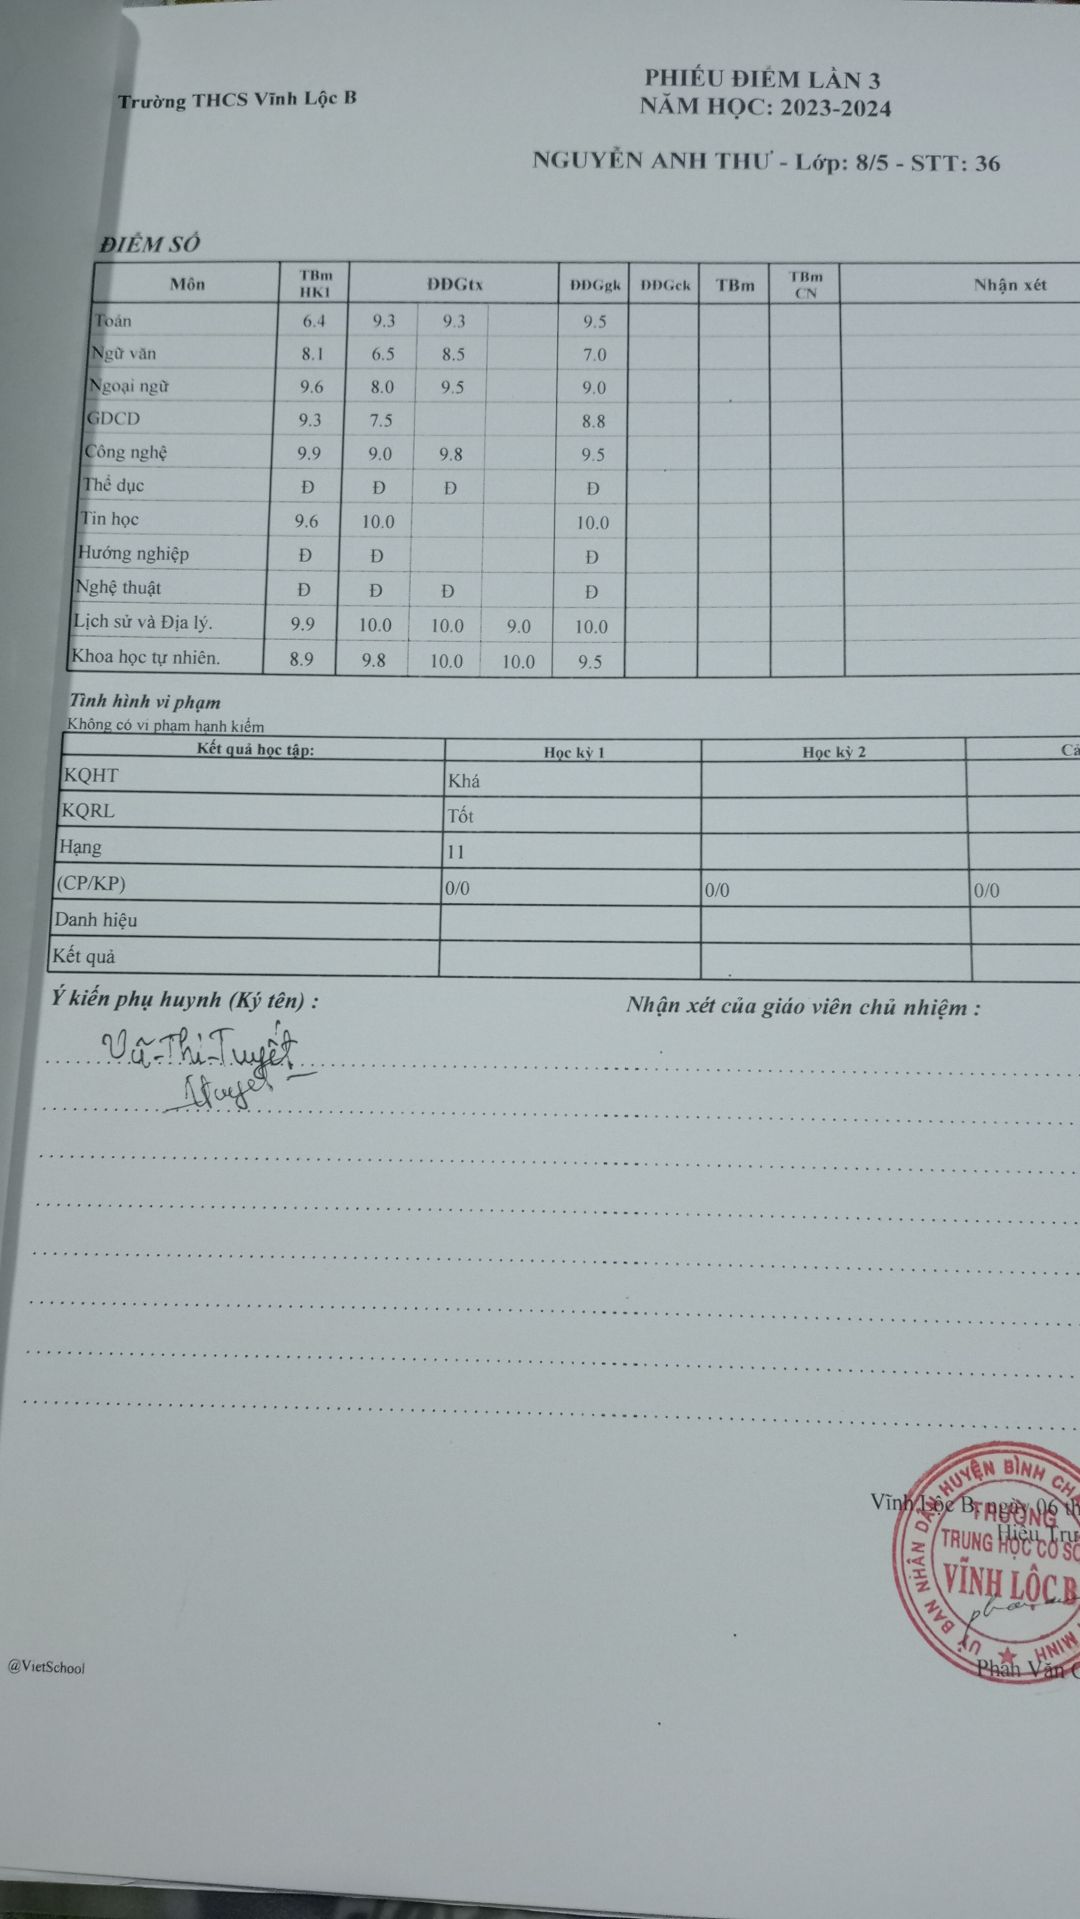 Trường THCS Vĩnh Lộc B
PHIẾU ĐIỂM LẦN 3
NĂM HỌC: 2023-2024
NGUYỄN ANH THƯ - Lớp: 8/5 - STT: 36
ĐIỂM SỐ
Môn TBm HK1 ĐĐGtx ĐĐGgk ĐĐGck TBm TBm CN Nhận xét
Toán 6.4 9.3 9.3 9.5
Ngữ văn 8.1 6.5 8.5 7.0
Ngoại ngữ 9.6 8.0 9.5 9.0
GDCD 9.3 7.5 8.8
Công nghệ 9.9 9.0 9.8 9.5
Thể dục Đ Đ Đ Đ
Tin học 9.6 10.0 10.0
Hướng nghiệp Đ Đ Đ
Nghệ thuật Đ Đ Đ Đ
Lịch sử và Địa lý. 9.9 10.0 10.0 9.0 10.0
Khoa học tự nhiên. 8.9 9.8 10.0 10.0 9.5
Tình hình vi phạm
Không có vi phạm hạnh kiểm
Kết quả học tập: Học kỳ 1 Học kỳ 2 Cả
KQHT Khá
KQRL Tốt
Hạng 11
(CP/KP) 0/0 0/0 0/0
Danh hiệu
Kết quả
Ý kiến phụ huynh (Ký tên) : Nhận xét của giáo viên chủ nhiệm :
Vũ-Thị-Tuyết
Tuyết
Vĩnh Lộc B, ngày 06 th
Hiệu Trư
ỦY BAN NHÂN DÂN HUYỆN BÌNH CHÁ
MINH
TRƯỜNG
TRUNG HỌC CƠ SỞ
VĨNH LỘC B
Phan Văn
@VietSchool